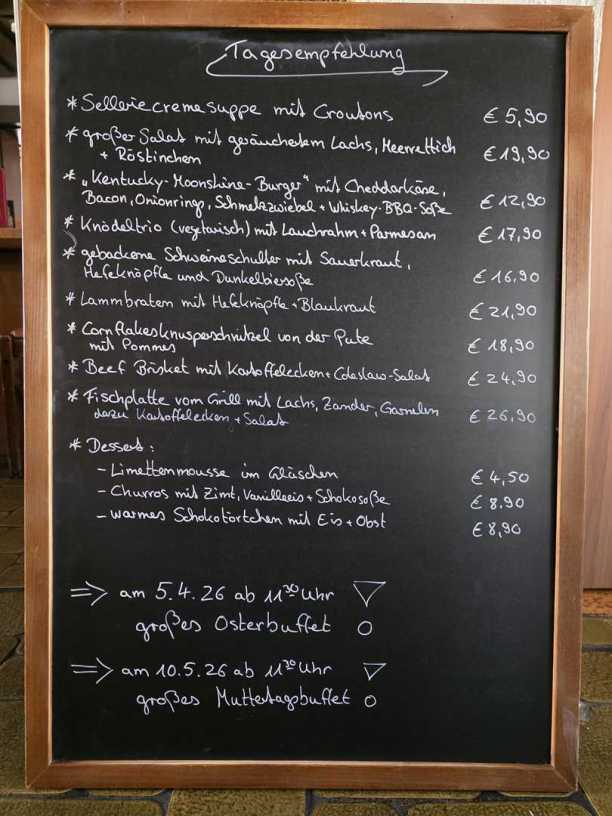 Tagesempfehlung
* Selleriecremesuppe mit Croutons € 5,90
* großer Salat mit geräuchertem Lachs, Meerrettich
+ Röstinchen € 19,90
* „Kentucky-Moonshine-Burger" mit Cheddarkäse,
Bacon, Onionrings, Schmelzzwiebel + Whiskey-BBQ-Soße € 12,90
* Knödeltrio (vegetarisch) mit Lauchrahm + Parmesan € 17,90
* gebackene Schweineschulter mit Sauerkraut,
Hefeknöpfle und Dunkelbiersoße € 16,90
* Lammbraten mit Hefeknöpfle + Blaukraut € 21,90
* Cornflakesknusperschnitzel von der Pute
mit Pommes € 18,90
* Beef Brisket mit Kartoffelecken + Coleslaw-Salat € 24,90
* Fischplatte vom Grill mit Lachs, Zander, Garnelen
dazu Kartoffelecken + Salat € 26,90
* Dessert:
- Limettenmousse im Gläschen € 4,50
- Churros mit Zimt, Vanilleeis + Schokosoße € 8,90
- warmes Schokotörtchen mit Eis + Obst € 8,90
⇒ am 5.4.26 ab 11 30 Uhr
großes Osterbuffet
⇒ am 10.5.26 ab 11 30 Uhr
großes Muttertagsbuffet